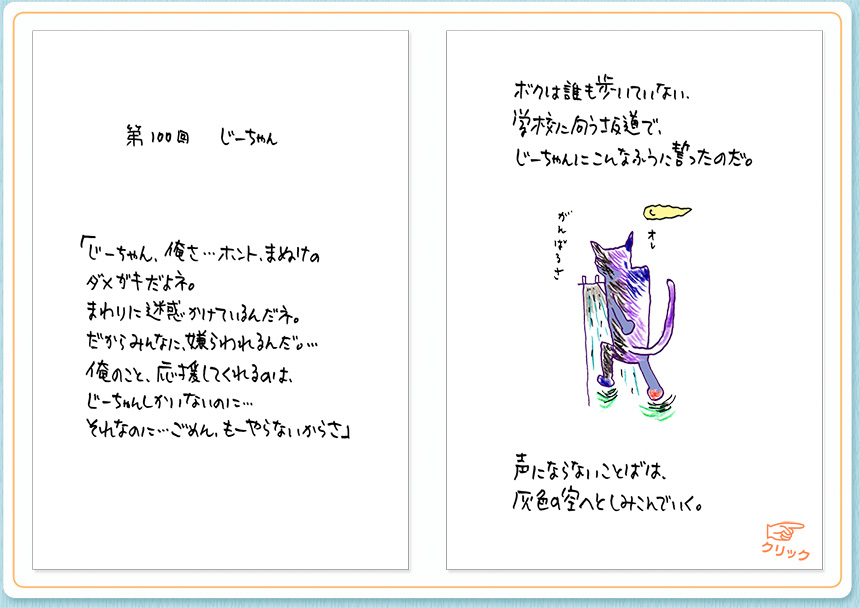 第100回 じーちゃん
「じーちゃん、俺さ…ホント、まぬけの
ダメガキだよネ。
まわりに迷惑かけているんだネ。
だからみんなに、嫌らわれるんだ。…
俺のこと、応援してくれるのは、
じーちゃんしかいないのに…
それなのに…ごめん、もーやらないからさ」
ボクは誰も歩いていない、
学校に向う坂道で、
じーちゃんにこんなふうに誓ったのだ。
オレ
がんばるさ
声にならないことばは、
灰色の空へとしみこんでいく。
クリック